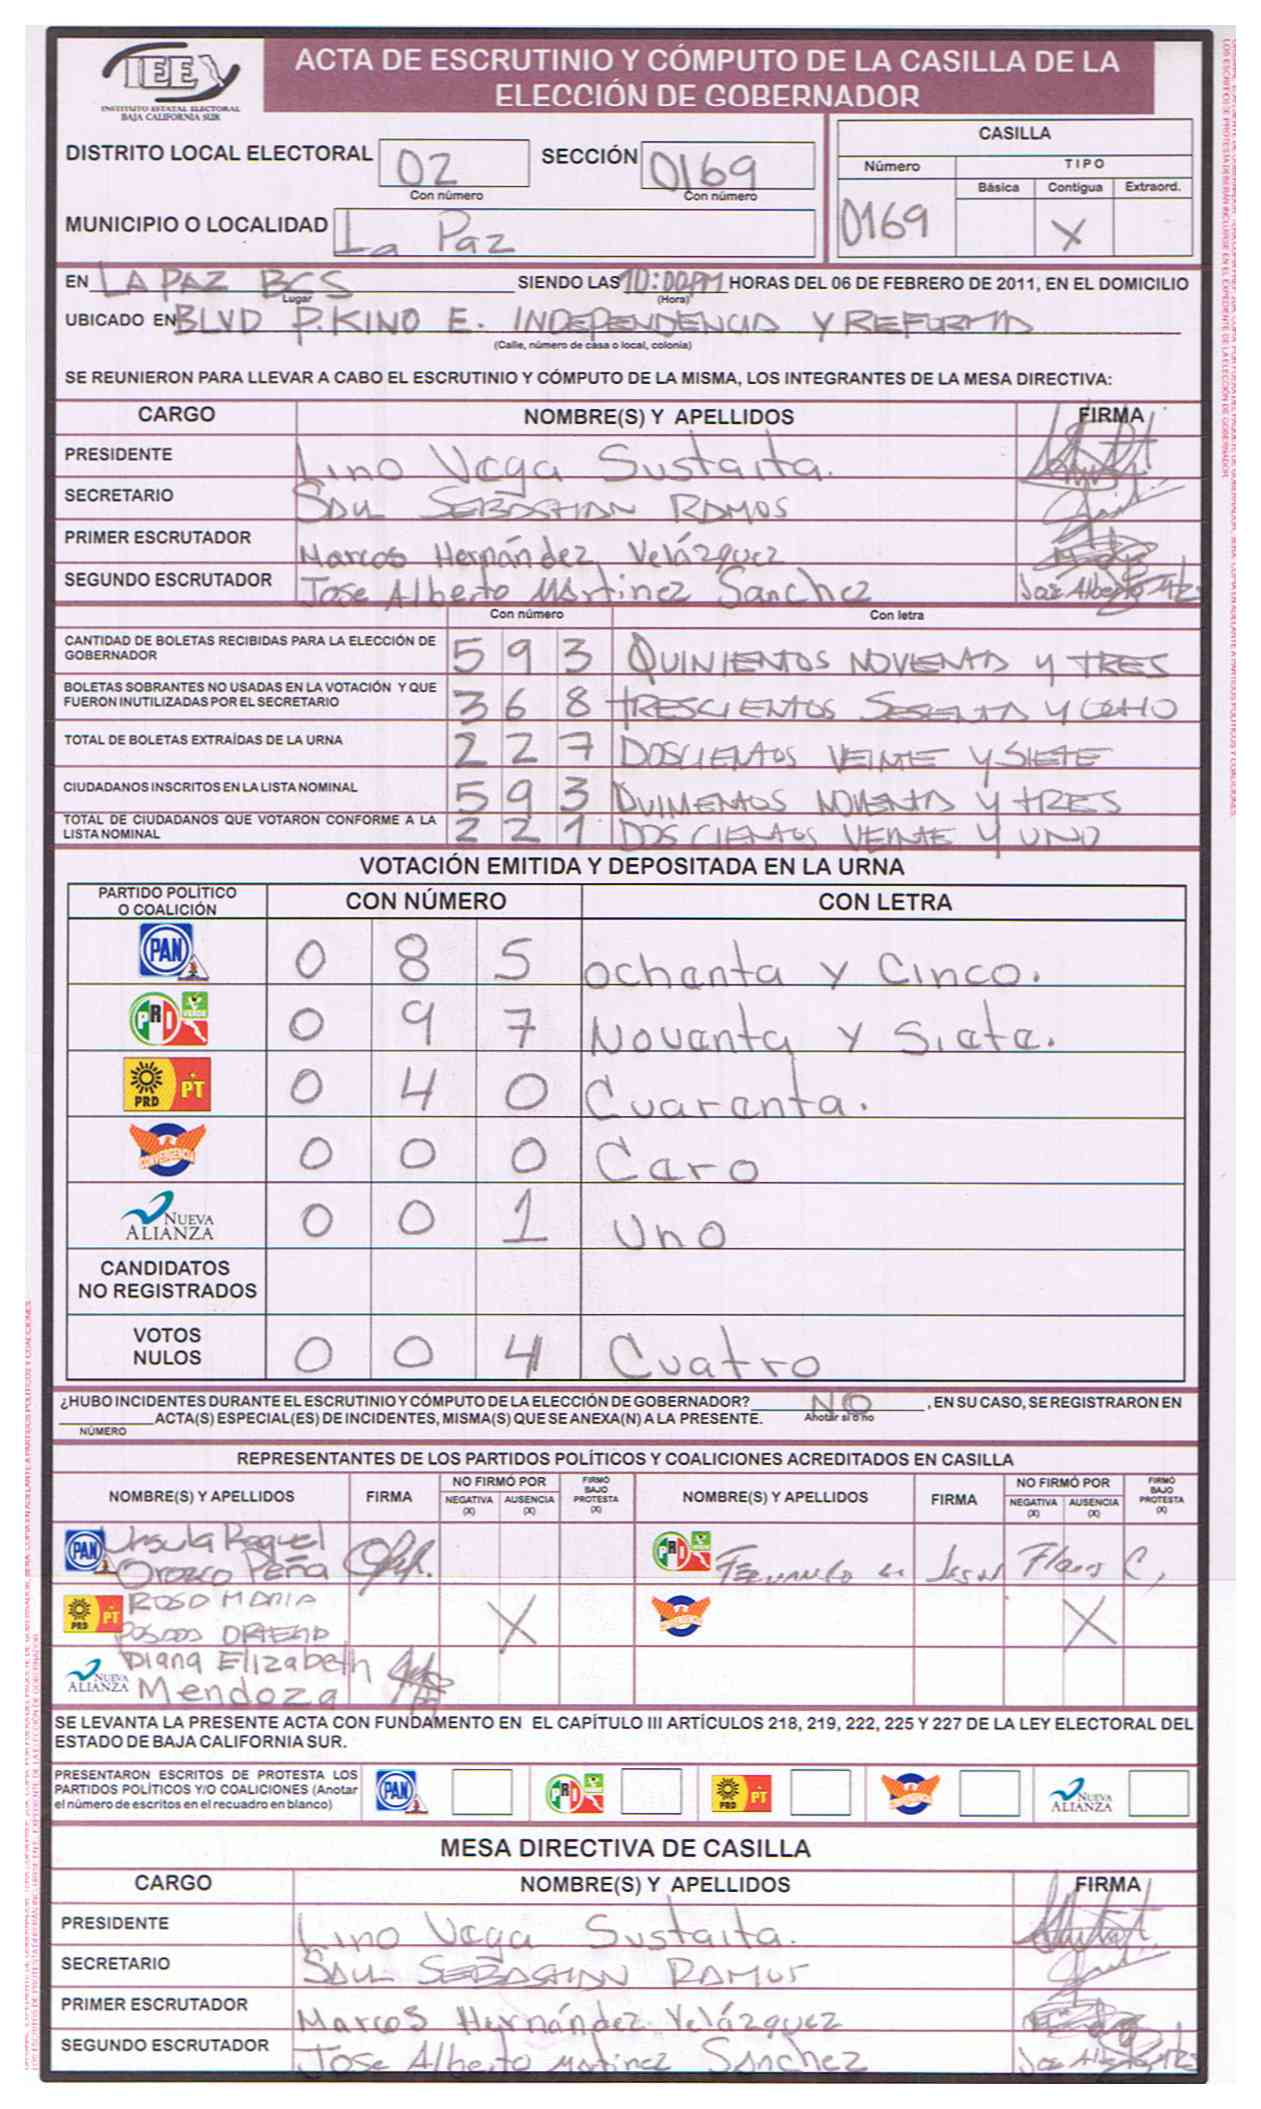 IEE
INSTITUTO ESTATAL ELECTORAL
BAJA CALIFORNIA SUR
ACTA DE ESCRUTINIO Y CÓMPUTO DE LA CASILLA DE LA
ELECCIÓN DE GOBERNADOR
DISTRITO LOCAL ELECTORAL 02 SECCIÓN 0169
Con número Con número
MUNICIPIO O LOCALIDAD La Paz
CASILLA
Número TIPO
Básica Contigua Extraord.
0169 X
EN LA PAZ BCS SIENDO LAS 10:00PM HORAS DEL 06 DE FEBRERO DE 2011, EN EL DOMICILIO
Lugar (Hora)
UBICADO EN BLVD P. KINO E. INDEPENDENCIA Y REFORMA
(Calle, número de casa o local, colonia)
SE REUNIERON PARA LLEVAR A CABO EL ESCRUTINIO Y CÓMPUTO DE LA MISMA, LOS INTEGRANTES DE LA MESA DIRECTIVA:
CARGO NOMBRE(S) Y APELLIDOS FIRMA
PRESIDENTE Lino Vega Sustaita.
SECRETARIO SAUL SEBASTIAN RAMOS
PRIMER ESCRUTADOR Marcos Hernández Velázquez
SEGUNDO ESCRUTADOR Jose Alberto Martinez Sanchez
Con número Con letra
CANTIDAD DE BOLETAS RECIBIDAS PARA LA ELECCIÓN DE
GOBERNADOR 5 9 3 QUINIENTOS NOVENTA Y TRES
BOLETAS SOBRANTES NO USADAS EN LA VOTACIÓN Y QUE
FUERON INUTILIZADAS POR EL SECRETARIO 3 6 8 TRESCIENTOS SESENTA Y OCHO
TOTAL DE BOLETAS EXTRAÍDAS DE LA URNA 2 2 7 DOSCIENTOS VEINTE Y SIETE
CIUDADANOS INSCRITOS EN LA LISTA NOMINAL 5 9 3 QUINIENTOS NOVENTA Y TRES
TOTAL DE CIUDADANOS QUE VOTARON CONFORME A LA
LISTA NOMINAL 2 2 1 DOSCIENTOS VEINTE Y UNO
VOTACIÓN EMITIDA Y DEPOSITADA EN LA URNA
PARTIDO POLÍTICO
O COALICIÓN CON NÚMERO CON LETRA
PAN 0 8 5 ochenta y Cinco.
PRI VERDE 0 9 7 Noventa y Siete.
PRD PT 0 4 0 Cuarenta.
CONVERGENCIA 0 0 0 Cero
NUEVA ALIANZA 0 0 1 Uno
CANDIDATOS
NO REGISTRADOS
VOTOS
NULOS 0 0 4 Cuatro
¿HUBO INCIDENTES DURANTE EL ESCRUTINIO Y CÓMPUTO DE LA ELECCIÓN DE GOBERNADOR? NO , EN SU CASO, SE REGISTRARON EN
ACTA(S) ESPECIAL(ES) DE INCIDENTES, MISMA(S) QUE SE ANEXA(N) A LA PRESENTE. Anotar si o no
NÚMERO
REPRESENTANTES DE LOS PARTIDOS POLÍTICOS Y COALICIONES ACREDITADOS EN CASILLA
NOMBRE(S) Y APELLIDOS FIRMA NO FIRMÓ POR NEGATIVA (X) AUSENCIA (X) FIRMÓ BAJO PROTESTA (X) NOMBRE(S) Y APELLIDOS FIRMA NO FIRMÓ POR NEGATIVA (X) AUSENCIA (X) FIRMÓ BAJO PROTESTA (X)
PAN Ursula Raquel
Orozco Peña
PRI VERDE Fernando de Jesus Flores C,
PRD PT ROSA MARIA
X
CONVERGENCIA X
NUEVA ALIANZA Diana Elizabeth
Mendoza
SE LEVANTA LA PRESENTE ACTA CON FUNDAMENTO EN EL CAPÍTULO III ARTÍCULOS 218, 219, 222, 225 Y 227 DE LA LEY ELECTORAL DEL
ESTADO DE BAJA CALIFORNIA SUR.
PRESENTARON ESCRITOS DE PROTESTA LOS
PARTIDOS POLÍTICOS Y/O COALICIONES (Anotar
el número de escritos en el recuadro en blanco)
PAN PRI VERDE PRD PT CONVERGENCIA NUEVA ALIANZA
MESA DIRECTIVA DE CASILLA
CARGO NOMBRE(S) Y APELLIDOS FIRMA
PRESIDENTE Lino Vega Sustaita.
SECRETARIO SAUL SEBASTIAN RAMOS
PRIMER ESCRUTADOR Marcos Hernández Velázquez
SEGUNDO ESCRUTADOR Jose Alberto Martinez Sanchez